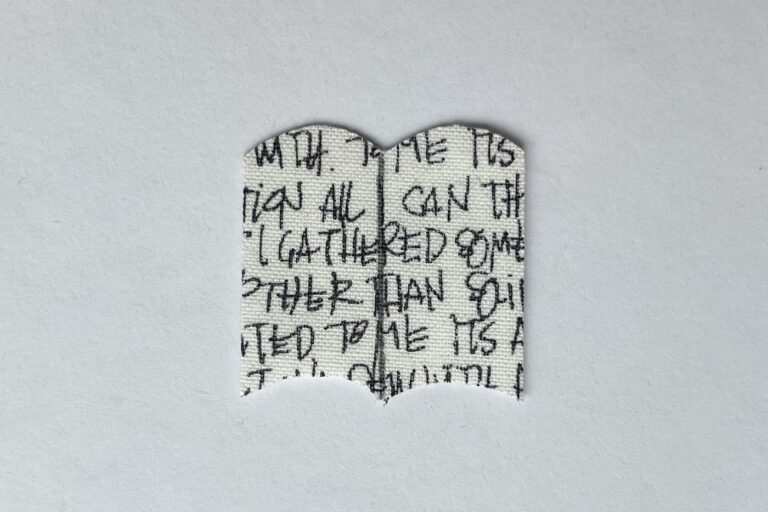 WITH. TO ME ITS
TION ALL I CAN TH
I GATHERED SOME
OTHER THAN SOI
TED TO ME ITS A